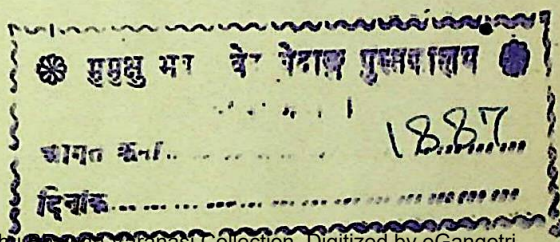 मुमुक्षु भवन वेद वेदाङ्ग पुस्तकालय
आगत क्रमांक........ 1887
दिनांक........
Varanasi Collection. Digitized by eGangotri